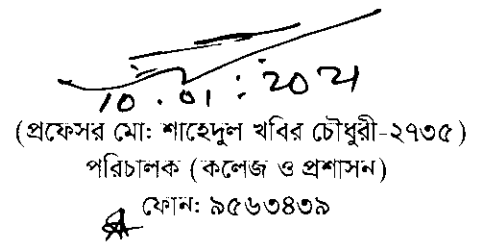 10.01.2021
(প্রফেসর মো: শাহেদুল খবির চৌধুরী-২৭৩৫)
পরিচালক (কলেজ ও প্রশাসন)
ফোন: ৯৫৬৩৪৩৯